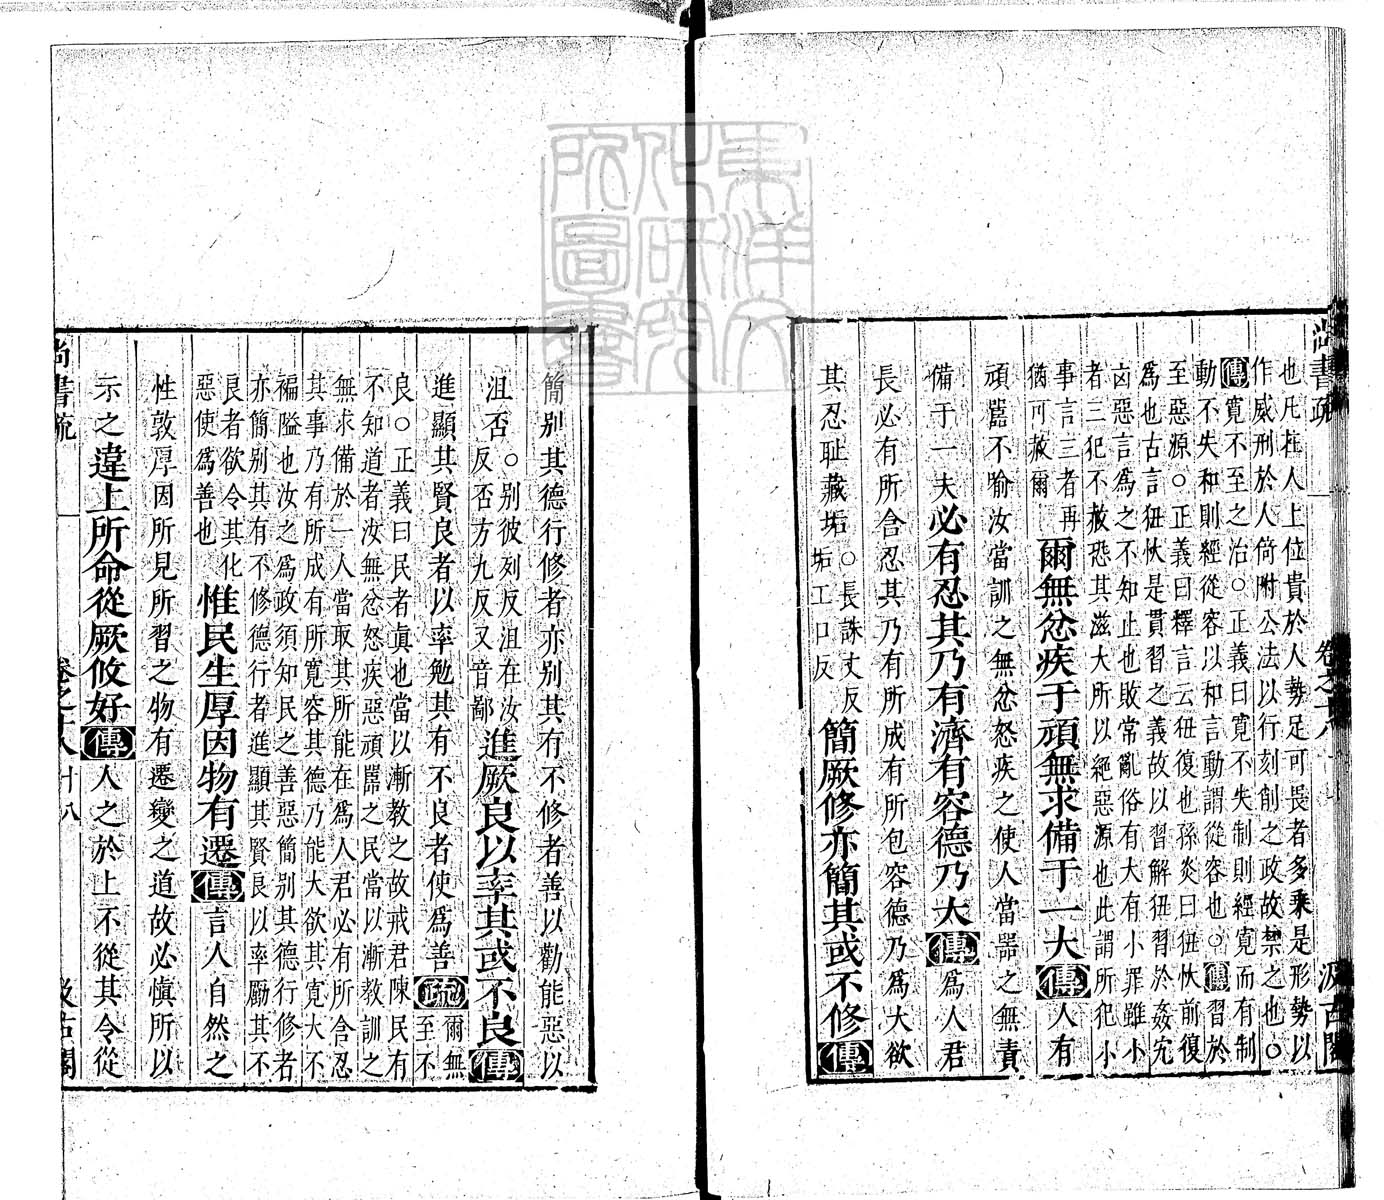 也凡在人上位貴於人勢足可畏者多乘是形勢以
作威刑於人倚附公法以行刻削之政故禁之也○
傳寬不至之治○正義曰寬不失制則經寬而有制
動不失和則經從容以和言動謂從容也○傳習於
至惡源○正義曰釋言云狃復也孫炎曰狃忕前復
爲也古言狃忕是貫習之義故以習解狃習於姦宄
凶惡言爲之不知止也敗常亂俗有大有小罪雖小
者三犯不赦恐其滋大所以絕惡源也此謂所犯小
事言三者再
猶可赦爾
爾無忿疾于頑無求備于一夫傳人有
頑嚚不喻汝當訓之無忿怒疾之使人當器之無責
備于一夫必有忍其乃有濟有容德乃大傳爲人君
長必有所含忍其乃有所成有所包容德乃爲大欲
其忍耻藏垢○長誅丈反
垢工口反
簡厥修亦簡其或不修傳
尚書疏 卷之十八 汲古閣
簡別其德行修者亦別其有不修者善以勸能惡以
沮否○別彼列反沮在汝
反否方九反又音鄙
進厥良以率其或不良傳
進顯其賢良者以率勉其有不良者使爲善疏爾無
至不
良○正義曰民者眞也當以漸教之故戒君陳民有
不知道者汝無忿怒疾惡頑嚚之民當以漸教訓之
無求備於一人當取其所能在爲人君必有所含忍
其事乃有所成有所寬容其德乃能大欲其寬大不
褊隘也汝之爲政須知民之善惡簡別其德行修者
亦簡別其有不修德行者進顯其賢良以率勵其不
良者欲令其化
惡使爲善也
惟民生厚因物有遷傳言人自然之
性敦厚因所見所習之物有遷變之道故必慎所以
示之違上所命從厥攸好傳人之於上不從其令從
尚書疏 卷之十八 十八 汲古閣
東洋文化研究所圖書